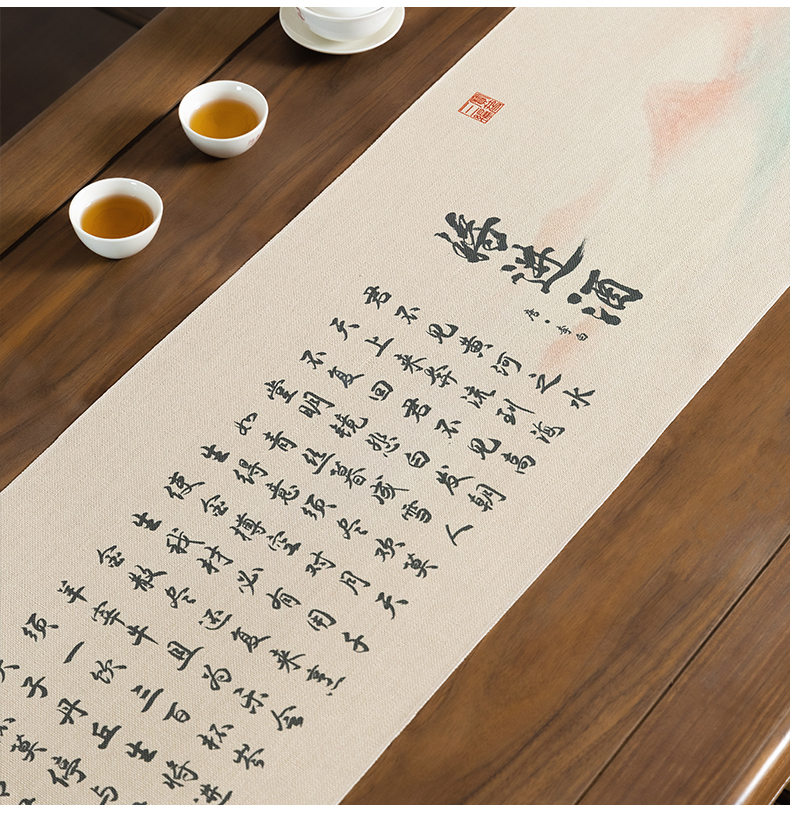 将进酒
唐·李白
君不见黄河之水
天上来奔流到海
不复回君不见高
堂明镜悲白发朝
如青丝暮成雪人
生得意须尽欢莫
使金樽空对月天
生我材必有用子
金散尽还复来烹
羊宰牛且为乐会
须一饮三百杯岑
夫子丹丘生将进
莫停与